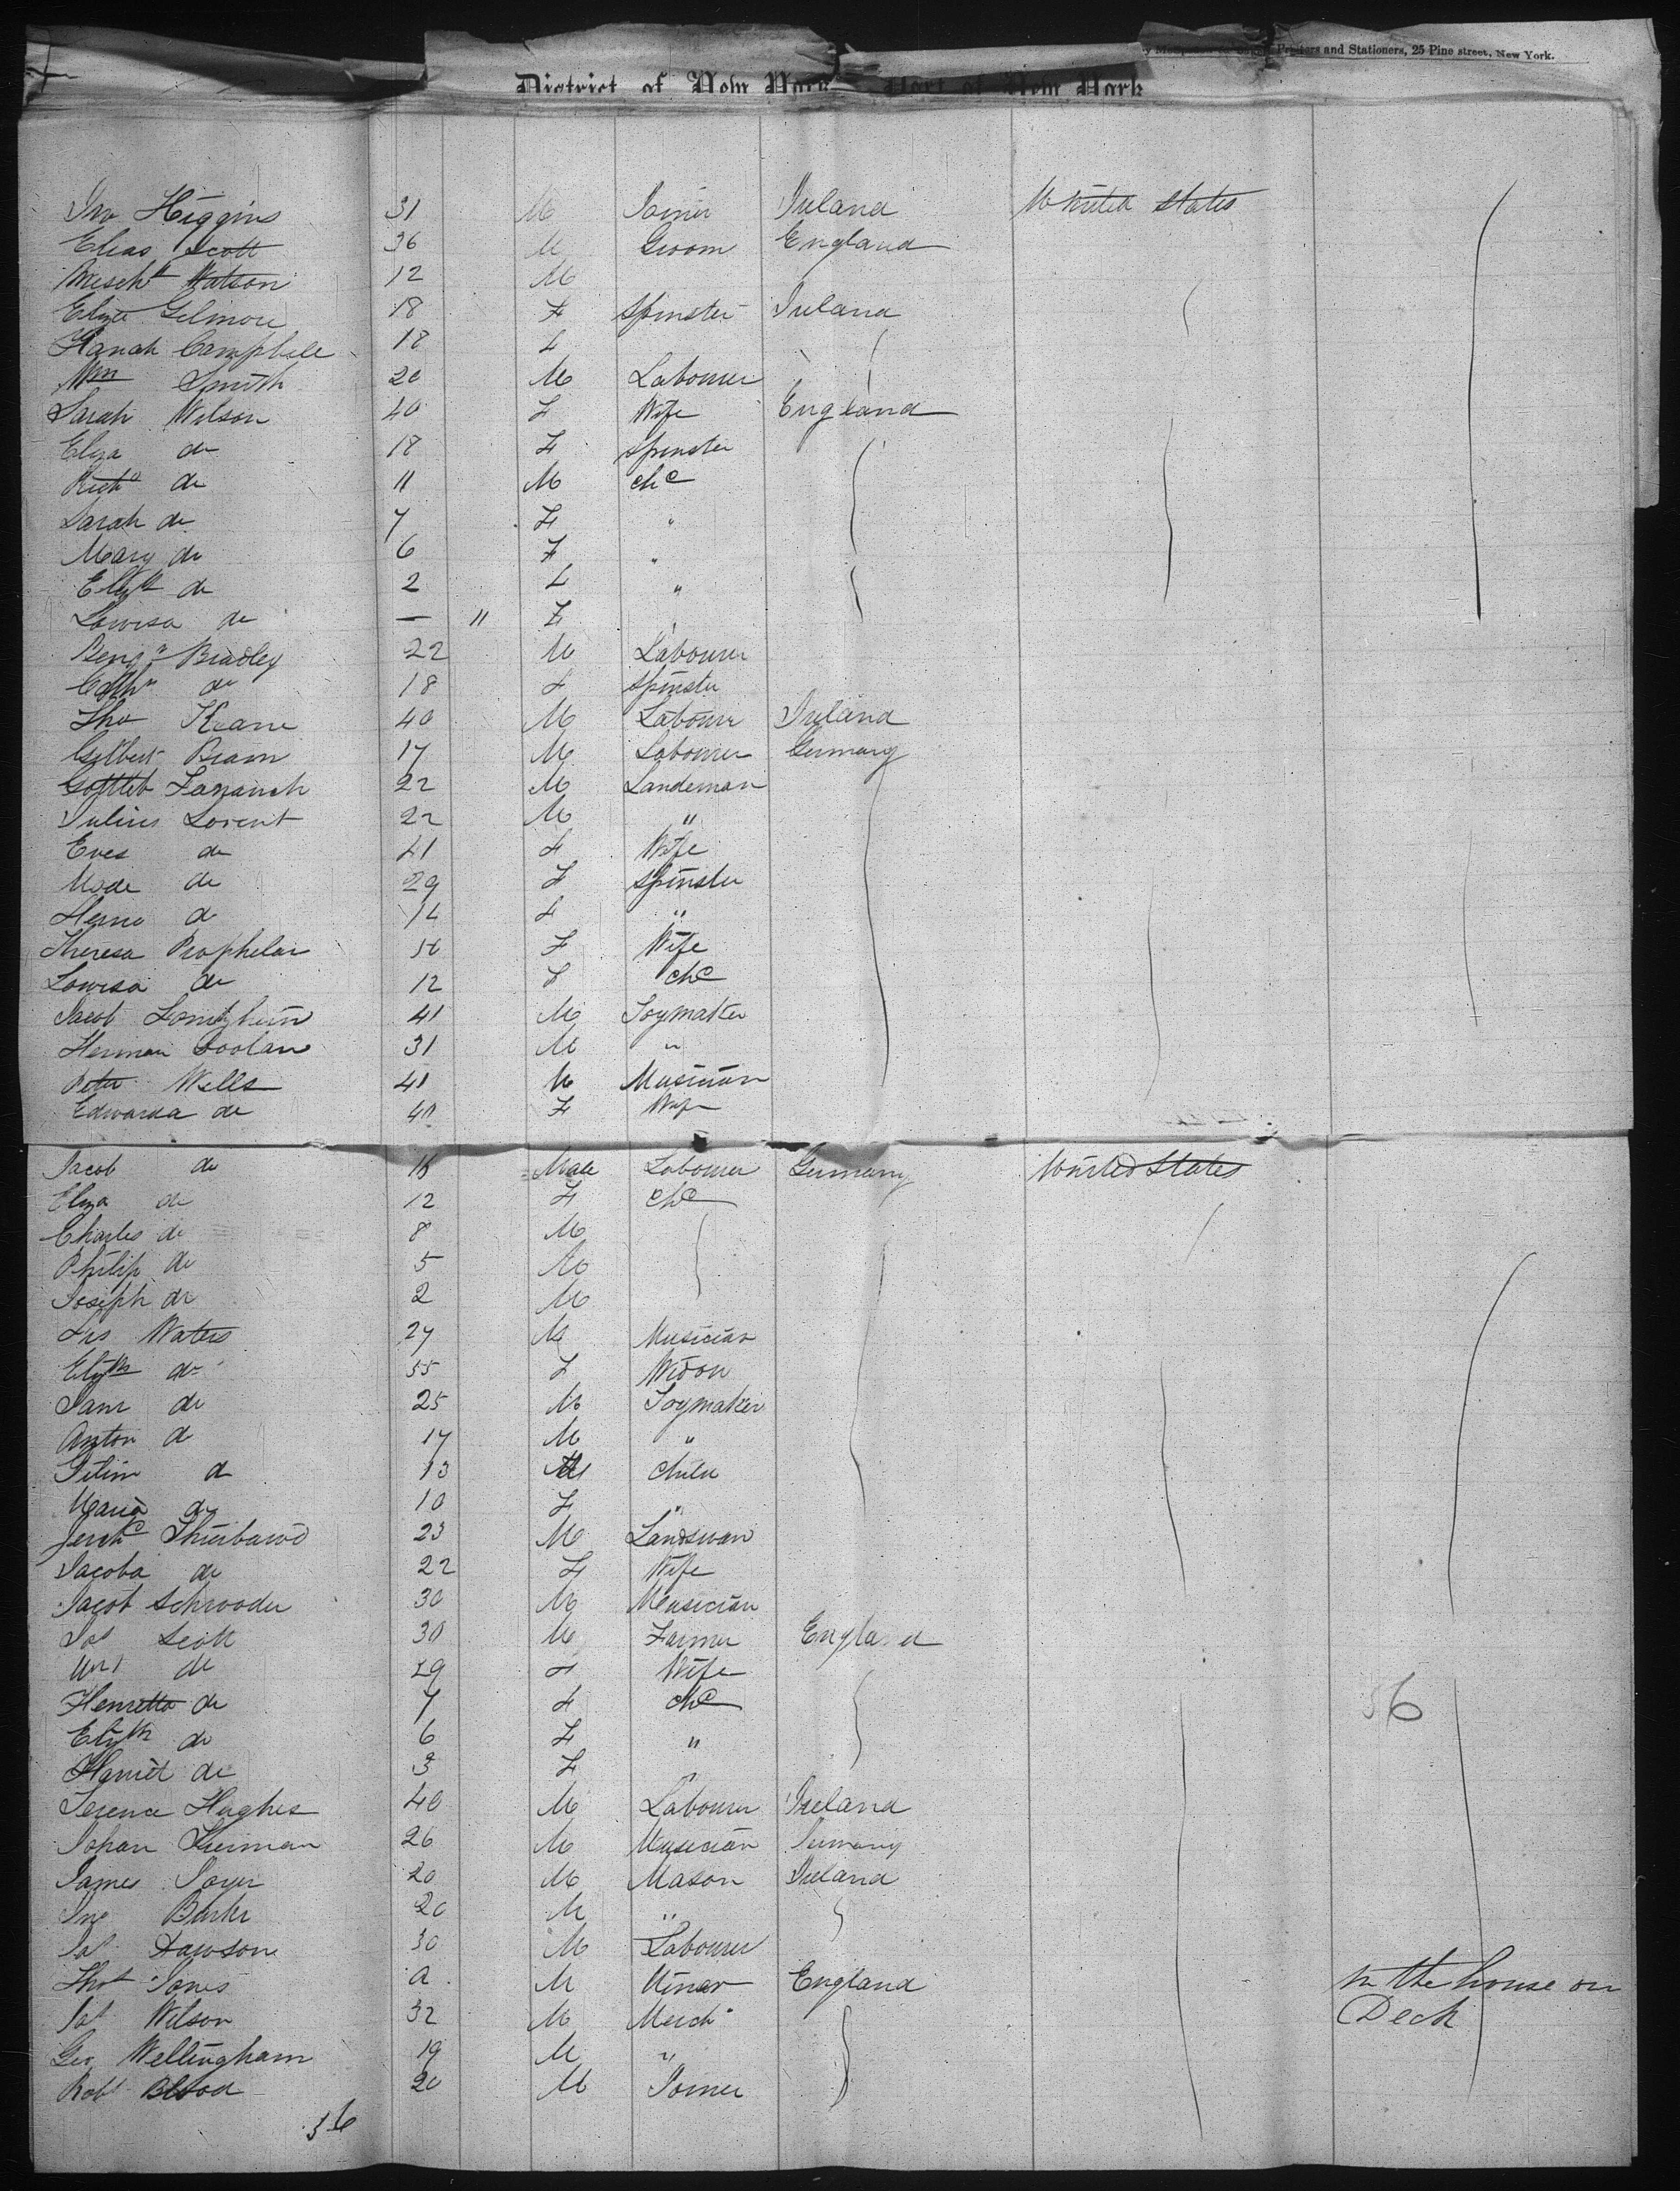 Printers and Stationers, 25 Pine street, New York.
District of New York Port of New York
Jno Higgins 31 M Joiner Ireland United States
Elias Scott 36 M Groom England
Watson 12 M
Eliza Gilmore 18 F Spinster Ireland
Hanah Campbell 18 F
Wm Smith 20 M Labourer
Sarah Wilson 40 F Wife England
Eliza do 18 F Spinster
Richd do 11 M chd
Sarah do 7 F "
Mary do 6 F "
Elizth do 2 F "
Lowisa do — 11 F
Benjn Bradley 22 M Labourer
Cathn do 18 F Spinster
Tho Keane 40 M Labourer Ireland
Gilbert Bram 17 M Labourer Germany
Gottlieb 22 M Landsman
Julius Lorent 22 M "
Eves do 41 F Wife
Mode do 29 F Spinster
do 14 F "
Theresa Prophelar 50 F Wife
Lowisa do 12 F chd
Jacob 41 M Toymaker
Herman Soolan 31 M "
Peter Wells 41 M Musician
Edwarda do 40 F Wife
Jacob do 16 Male Labourer Germany United States
Eliza do 12 F chd
Charles do 8 M
Philip do 5 M
Joseph do 2 M
Waters 27 M Musician
Elizth do 55 F Widow
Sam do 25 M Toymaker
Anton do 17 M "
do 13 M Child
Maria do 10 F "
23 M Landsman
Jacoba do 22 F Wife
Jacob Schrooder 30 M Musician
Jas Scott 30 M Farmer England
do 29 F Wife
Henretta do 7 F chd
Elizth do 6 F "
Harriet do 3 F "
Terence Hughes 40 M Labourer Ireland
Johan Hurman 26 M Musician Germany
James 20 M Mason Ireland
Jno Burke 20 M "
Pat Dawson 30 M Labourer
Thos Jones a M Miner England In the house on
Jas Wilson 32 M Mech Deck
Geo Wellingham 19 M "
Robt Blood 20 M Joiner
56
36